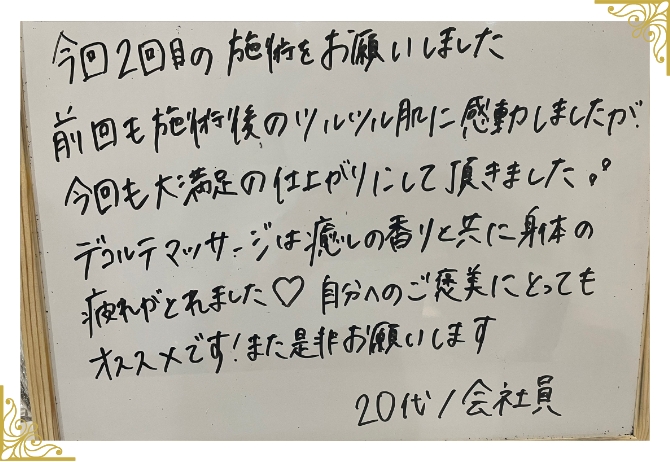 今回2回目の施術をお願いしました
前回も施術後のツルツル肌に感動しましたが
今回も大満足の仕上がりにして頂きました。
デコルテマッサージは癒しの香りと共に身体の
疲れがとれました♡ 自分へのご褒美にとっても
オススメです!また是非お願いします
20代/会社員